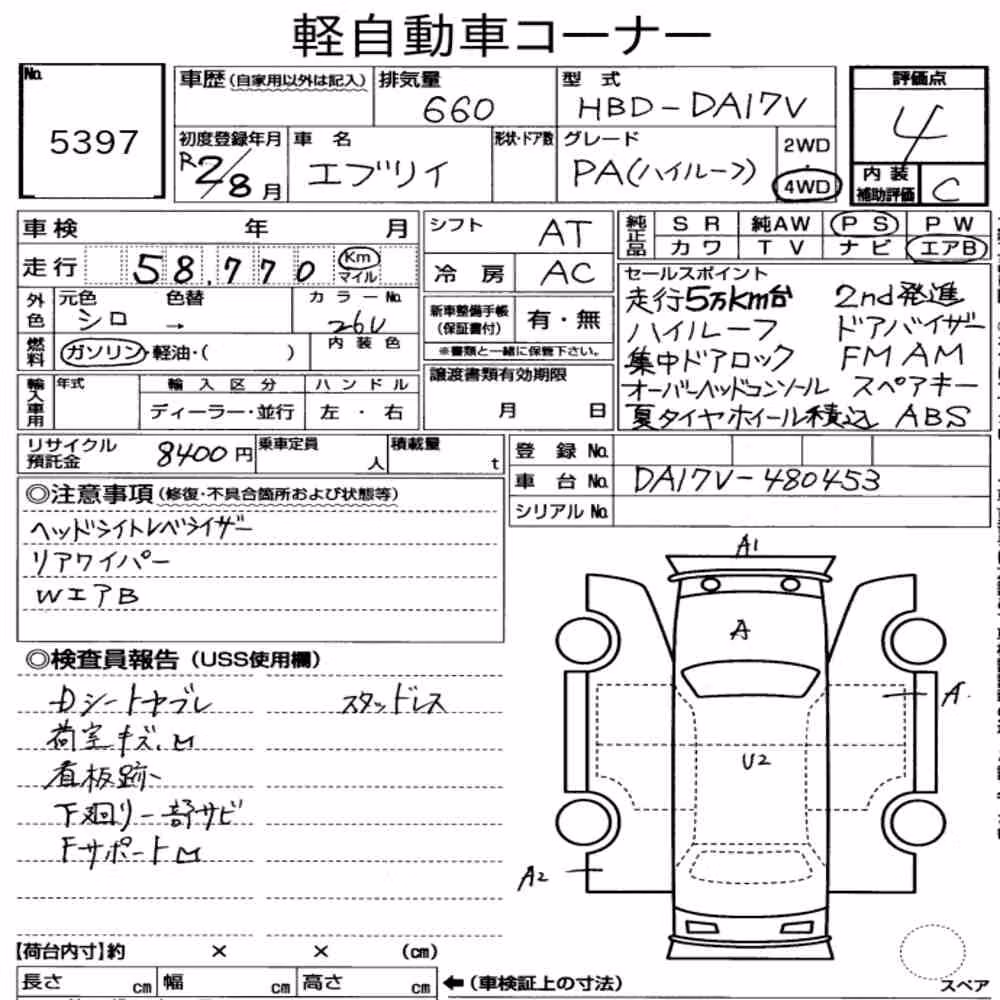 軽自動車コーナー
No. 5397
車歴 (自家用以外は記入) 排気量 660 型式 HBD-DA17V 評価点 4
初度登録年月 R2/8月 車名 エブリイ 形状・ドア数 グレード PA(ハイルーフ) 2WD・4WD 内装補助評価 C
車検 年 月 シフト AT 純正品 SR 純AW PS PW
カワ TV ナビ エアB
走行 58,770 Km マイル 冷房 AC
外色 元色 シロ 色替 → カラーNo. 26U
燃料 ガソリン・軽油・( ) 内装色
新車整備手帳(保証書付) 有・無
※書類と一緒に保管下さい。
セールスポイント
走行5万Km台 2nd発進
ハイルーフ ドアバイザー
集中ドアロック FM AM
オーバーヘッドコンソール スペアキー
夏タイヤホイール積込 ABS
輸入車用 年式 輸入区分 ハンドル
ディーラー・並行 左・右
譲渡書類有効期限
月 日
リサイクル預託金 8400円 乗車定員 人 積載量 t
登録No.
車台No. DA17V-480453
シリアルNo.
◎注意事項 (修復・不具合箇所および状態等)
ヘッドライトレベライザー
リアワイパー
WエアB
◎検査員報告 (USS使用欄)
Dシートヤブレ スタッドレス
荷室キズ、凹
看板跡
下廻り一部サビ
Fサポート凹
A1
A
A
U2
A2
【荷台内寸】約 × × (cm)
長さ cm 幅 cm 高さ cm ←(車検証上の寸法)
スペア